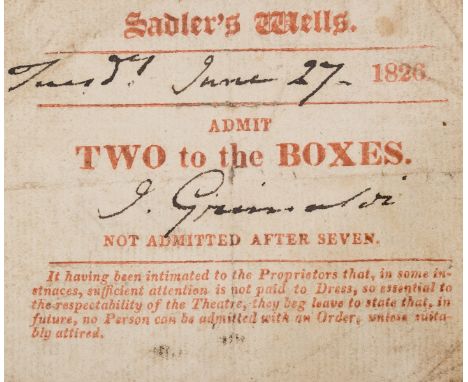 Sadler's Wells.
Tuesdy. June 27 - 1826
ADMIT
TWO to the BOXES.
J. Grimaldi
NOT ADMITTED AFTER SEVEN.
It having been intimated to the Proprietors that, in some in-
stnaces, sufficient attention is not paid to Dress, so essential to
the respectability of the Theatre, they beg leave to state that, in
future, no Person can be admitted with an Order, unless suita-
bly attired.